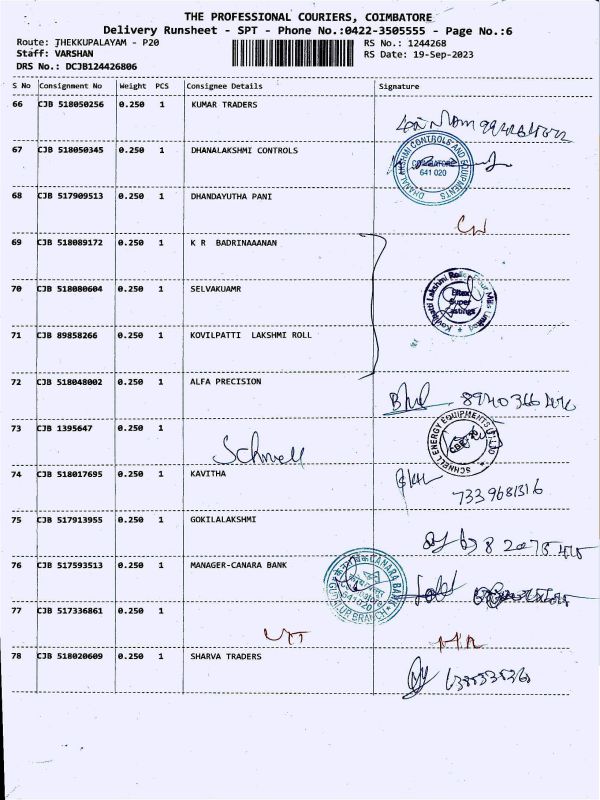 THE PROFESSIONAL COURIERS, COIMBATORE
Delivery Runsheet - SPT - Phone No.:0422-3505555 - Page No.:6
Route: THEKKUPALAYAM - P20 RS No.: 1244268
Staff: VARSHAN RS Date: 19-Sep-2023
DRS No.: DCJB124426806
S No Consignment No Weight PCS Consignee Details Signature
66 CJB 518050256 0.250 1 KUMAR TRADERS
67 CJB 518050345 0.250 1 DHANALAKSHMI CONTROLS
DHANALAKSHMI CONTROLS AND EQUIPMENTS
COIMBATORE
641 020
68 CJB 517909513 0.250 1 DHANDAYUTHA PANI
69 CJB 518089172 0.250 1 K R BADRINAAANAN
70 CJB 518080604 0.250 1 SELVAKUAMR
Kovilpatti Lakshmi Roller Flour Mills Limited
71 CJB 89858266 0.250 1 KOVILPATTI LAKSHMI ROLL
72 CJB 518048002 0.250 1 ALFA PRECISION
73 CJB 1395647 0.250 1
Schnell
SCHNELL ENERGY EQUIPMENTS (P) LTD
74 CJB 518017695 0.250 1 KAVITHA
7339681316
75 CJB 517913955 0.250 1 GOKILALAKSHMI
76 CJB 517593513 0.250 1 MANAGER-CANARA BANK
CANARA BANK
641020
GUDALUR BRANCH
77 CJB 517336861 0.250 1
78 CJB 518020609 0.250 1 SHARVA TRADERS